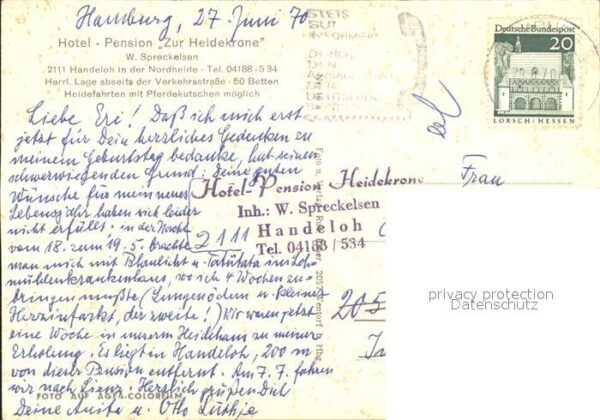 Hamburg, 27. Juni 70
Hotel - Pension „Zur Heidekrone"
W. Spreckelsen
2111 Handeloh in der Nordheide - Tel. 04188 - 5 34
Herrl. Lage abseits der Verkehrsstraße - 50 Betten
Heidefahrten mit Pferdekutschen möglich
STETS
INFORMIERT
DURCH
DEN
ANSAGEDIENST
DER
DEUTSCHEN
Deutsche Bundespost
20
LORSCH / HESSEN
Liebe Eri! Daß ich mich erst
jetzt für Dein herzliches Gedenken zu
meinem Geburtstag bedanke, hat seinen
schwerwiegenden Grund: Deine guten
Wünsche für mein neues
Lebensjahr haben sich leider
nicht erfüllt. in der Nacht
vom 18. zum 19.5. brachte
man mich mit Blaulicht u. Tatütata ins
mühlenkrankenhaus, wo ich 4 Wochen zu-
bringen mußte (Lungenödem u. kleiner
Herzinfarkt, der zweite!) Wir waren jetzt
eine Woche in unserm Heidehaus zu meiner
Erholung. Es liegt in Handeloh, 200 m
von dieser Pension entfernt. Am 7.7. fahren
wir nach Lienz. Herzlich grüßen Dich
Deine Anita u. Otto
FOTO AUF AGFA-COLORFILM
Hotel-Pension Heidekrone
Inh.: W. Spreckelsen
2111 Handeloh
Tel. 04188 / 534
Foto u. Verlag
Frau
205
privacy protection
Datenschutz